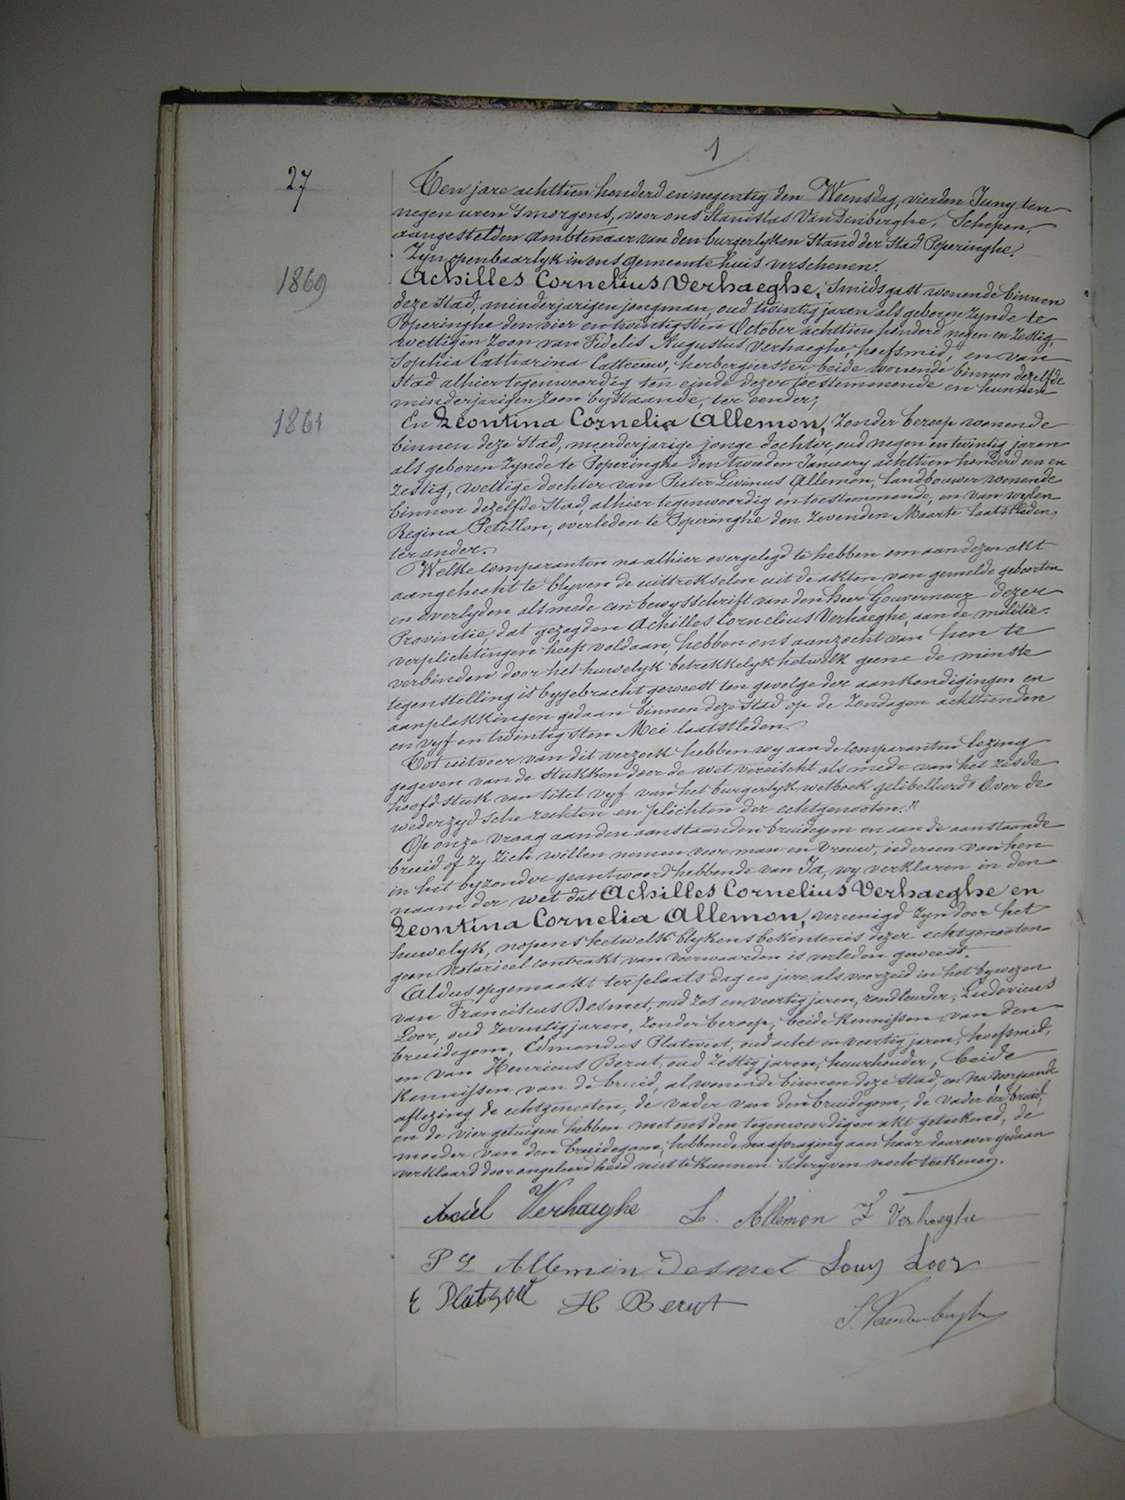 1
27
Ten jare achttien honderd en negentig den Woensdag, vierden Juny ten
negen uren 's morgens, voor ons Stanislas Vandenberghe, Schepen,
aangestelden ambtenaar van den burgerlyken Stand der Stad Poperinghe.
Zyn openbaarlyk in ons gemeentehuis verschenen.
1869
Achilles Cornelius Verhaeghe, Smidsgast wonende binnen
deze Stad, minderjarigen jongman, oud twintig jaren als geboren zynde te
Poperinghe den vier en twintigsten October achttien honderd negen en zestig,
wettigen zoon van Fidelis Augustus Verhaeghe, hoefsmid, en van
Sophia Catharina Catteeuw, herbergierster beide wonende binnen dezelfde
Stad alhier tegenwoordig ten einde dezer toestemmende en hunnen
minderjarigen zoon bystaande, ter eender;
1861
En Leontina Cornelia Allemon, zonder beroep wonende
binnen deze Stad, meerderjarige jonge dochter, oud negen en twintig jaren
als geboren zynde te Poperinghe den tweeden January achttien honderd een en
zestig, wettige dochter van Pieter Livinus Allemon, Landbouwer wonende
binnen dezelfde Stad, alhier tegenwoordig en toestemmende, en van wylen
Regina Petillon, overleden te Poperinghe den zevenden Maart laatstleden,
ter ander.
Welke comparanten na alhier overgelegd te hebben om aan dezen akt
aangehecht te blyven de uittrekselen uit de akten van gemelde geboorten
en overlyden als mede een bewysschrift van den heer Gouverneur dezer
Provintie, dat gezegden Achilles Cornelius Verhaeghe, aan de militie-
verplichtingen heeft voldaan, hebben ons aanzocht van hen te
verbinden door het huwelyk betrekkelyk hetwelk geene de minste
tegenstelling is bygebracht geweest ten gevolge der aankondigingen en
aanplakkingen gedaan binnen deze Stad op de Zondagen achttienden
en vyf en twintigsten Mei laatstleden.
Tot uitvoer van dit verzoek hebben wy aan de comparanten lezing
gegeven van de stukken door de wet vereischt als mede van het zesde
hoofdstuk van titel vyf van het burgerlyk wetboek gelibelleerd "Over de
wederzydsche rechten en plichten der echtgenooten."
Op onze vraag aan den aanstaanden bruidegom en aan de aanstaande
bruid of zy zich willen nemen voor man en vrouw, iedereen van hen
in het byzonder geantwoord hebbende van Ja, wy verklaren in den
naam der wet dat Achilles Cornelius Verhaeghe en
Leontina Cornelia Allemon, vereenigd zyn door het
houwelyk, nopens hetwelk blykens bekentenis dezer echtgenooten
geen Notarieel contrakt van voorwaarden is verleden geweest.
Aldus opgemaakt ter plaats dag en jare als voorzeid in het bywezen
van Franciscus Desmet, oud zes en veertig jaren, rondleurder, Ludovicus
Loor, oud zeventig jaren, zonder beroep, beide kennissen van den
bruidegom, Edmondus Platevoet, oud acht en veertig jaren, hoefsmid,
en van Henricus Berat, oud zestig jaren, huurhouder, beide
kennissen van de bruid, al wonende binnen deze Stad, en na voorgaande
aflezing de echtgenooten, de vader van den bruidegom, de vader der bruid,
en de vier getuigen hebben met ons den tegenwoordigen akt geteekend, de
moeder van den bruidegom, hebbende na afvraging aan haar daarover gedaan
verklaard door ongeleerdheid niet te kunnen schryven noch teekenen.
Verhaeghe L. Allemon F Verhaeghe
P L Allemon Desmet Louis Loor
E Platevoet H Berat S. Vandenberghe